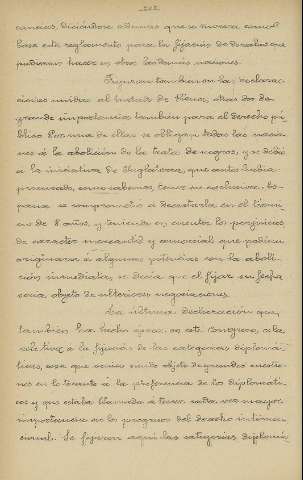 cancías, diciéndose además que se tomara como
base este reglamento para la fijación de derechos que
pudieran hacer en otros las demás naciones.
Figuran también en las declara-
ciones unidas al tratado de Viena, otras dos de
grande importancia también para el derecho pú-
blico. Por una de ellas se obligan todas las nacio-
nes á la abolición de la trata de negros, y se debió
á la iniciativa de Inglaterra, que antes había
procurado, como sabemos, conseguirlo. Es-
paña se comprometió á decretarla en el térmi-
no de 8 años, y teniendo en cuenta los perjuicios
de carácter mercantil y comercial que podían
originarse á algunas potencias con la aboli-
ción inmediata, se decía que el fijar su fecha
sería objeto de ulteriores negociaciones.
La última declaración que,
también ha hecho época en este Congreso, es la
relativa á la fijación de las categorías diplomá-
ticas, cosa que venía siendo objeto de grandes cuestio-
nes en lo tocante á la preferencia de los diplomáti-
cos y que estaba llamada á tener cada vez mayor
importancia en los progresos del derecho interna-
cional. Se fijaron aquí las categorías diplomá-